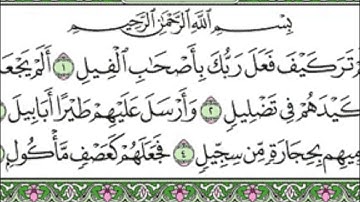 بِسْمِ اللَّهِ الرَّحْمَٰنِ الرَّحِيمِ
تَرَ كَيْفَ فَعَلَ رَبُّكَ بِأَصْحَابِ الْفِيلِ ١ أَلَمْ يَجْعَ
كَيْدَهُمْ فِي تَضْلِيلٍ ٢ وَأَرْسَلَ عَلَيْهِمْ طَيْرًا أَبَابِيلَ
مِيهِم بِحِجَارَةٍ مِّن سِجِّيلٍ ٤ فَجَعَلَهُمْ كَعَصْفٍ مَّأْكُولٍ